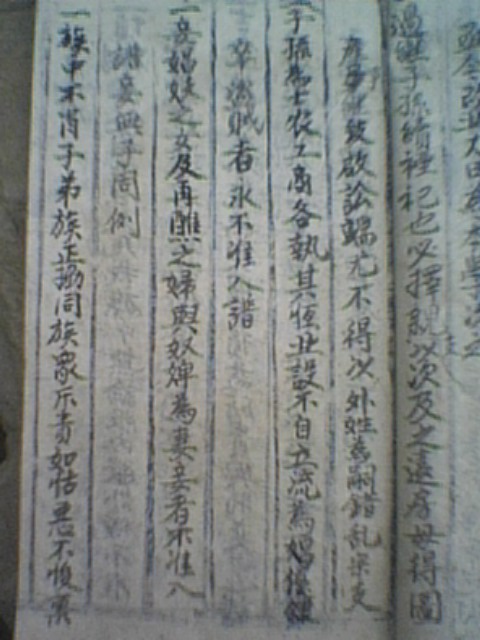 過無子孫續禋祀也必擇親以次及之遠房毋得圖
產爭　致啟訟端尤不得以外姓為嗣錯亂宗支
子孫為士農工商各執其恆业設不自立流為娼優隸
卒　賊者永不准入譜
一妾娼妓之女及再醮之婦與奴婢為妻妾者不准入
譜妾無子同例
一族中不肖子弟族正協同族眾斥責如怙惡不悛稟